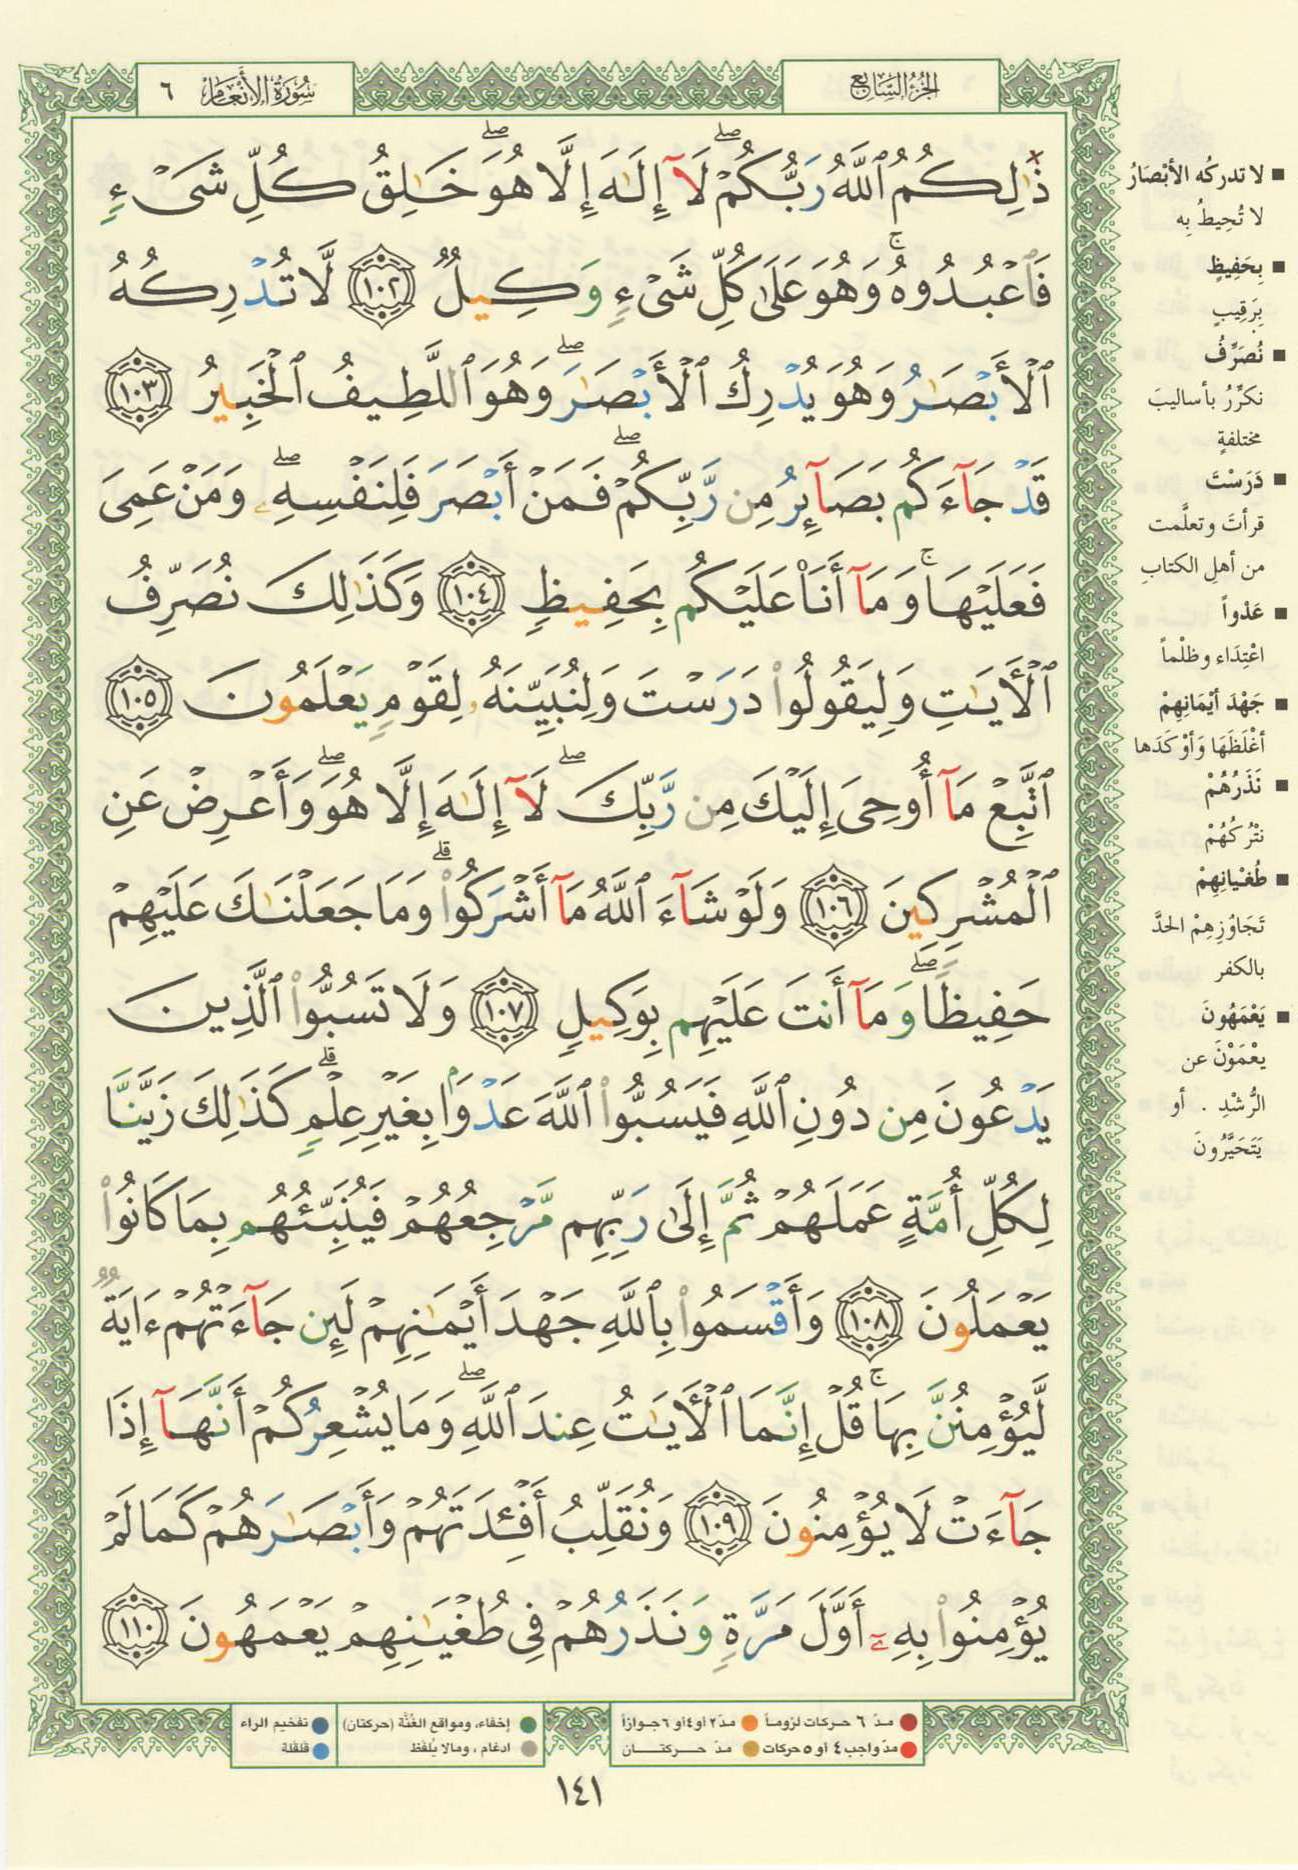 سُورَةُ الأَنْعَامِ ٦
الجُزْءُ السَّابِعُ
ذَٰلِكُمُ ٱللَّهُ رَبُّكُمْ ۖ لَآ إِلَٰهَ إِلَّا هُوَ ۖ خَٰلِقُ كُلِّ شَىْءٍ
فَٱعْبُدُوهُ ۚ وَهُوَ عَلَىٰ كُلِّ شَىْءٍ وَكِيلٌ ١٠٢ لَّا تُدْرِكُهُ
ٱلْأَبْصَٰرُ وَهُوَ يُدْرِكُ ٱلْأَبْصَٰرَ ۖ وَهُوَ ٱللَّطِيفُ ٱلْخَبِيرُ ١٠٣
قَدْ جَآءَكُم بَصَآئِرُ مِن رَّبِّكُمْ ۖ فَمَنْ أَبْصَرَ فَلِنَفْسِهِۦ ۖ وَمَنْ عَمِىَ
فَعَلَيْهَا ۚ وَمَآ أَنَا۠ عَلَيْكُم بِحَفِيظٍ ١٠٤ وَكَذَٰلِكَ نُصَرِّفُ
ٱلْـَٔايَٰتِ وَلِيَقُولُوا۟ دَرَسْتَ وَلِنُبَيِّنَهُۥ لِقَوْمٍ يَعْلَمُونَ ١٠٥
ٱتَّبِعْ مَآ أُوحِىَ إِلَيْكَ مِن رَّبِّكَ ۖ لَآ إِلَٰهَ إِلَّا هُوَ ۖ وَأَعْرِضْ عَنِ
ٱلْمُشْرِكِينَ ١٠٦ وَلَوْ شَآءَ ٱللَّهُ مَآ أَشْرَكُوا۟ ۗ وَمَا جَعَلْنَٰكَ عَلَيْهِمْ
حَفِيظًا ۖ وَمَآ أَنتَ عَلَيْهِم بِوَكِيلٍ ١٠٧ وَلَا تَسُبُّوا۟ ٱلَّذِينَ
يَدْعُونَ مِن دُونِ ٱللَّهِ فَيَسُبُّوا۟ ٱللَّهَ عَدْوًۢا بِغَيْرِ عِلْمٍ ۗ كَذَٰلِكَ زَيَّنَّا
لِكُلِّ أُمَّةٍ عَمَلَهُمْ ثُمَّ إِلَىٰ رَبِّهِم مَّرْجِعُهُمْ فَيُنَبِّئُهُم بِمَا كَانُوا۟
يَعْمَلُونَ ١٠٨ وَأَقْسَمُوا۟ بِٱللَّهِ جَهْدَ أَيْمَٰنِهِمْ لَئِن جَآءَتْهُمْ ءَايَةٌ
لَّيُؤْمِنُنَّ بِهَا ۚ قُلْ إِنَّمَا ٱلْـَٔايَٰتُ عِندَ ٱللَّهِ ۖ وَمَا يُشْعِرُكُمْ أَنَّهَآ إِذَا
جَآءَتْ لَا يُؤْمِنُونَ ١٠٩ وَنُقَلِّبُ أَفْـِٔدَتَهُمْ وَأَبْصَٰرَهُمْ كَمَا لَمْ
يُؤْمِنُوا۟ بِهِۦٓ أَوَّلَ مَرَّةٍ وَنَذَرُهُمْ فِى طُغْيَٰنِهِمْ يَعْمَهُونَ ١١٠
■ لا تدركُه الأبْصَارُ
لا تُحِيطُ بِه
■ بِحَفِيظٍ
بِرَقِيبٍ
■ نُصَرِّفُ
نكَرِّرُ بأساليبَ
مختلفةٍ
■ دَرَسْتَ
قرأتَ وتعلَّمت
من أهلِ الكتابِ
■ عَدْواً
اعْتِدَاء وظلْماً
■ جَهْدَ أيْمَانِهِمْ
أغْلَظَهَا وَأوْكَدَها
■ نَذَرُهُمْ
نتْرُكُهُمْ
■ طُغْيانِهِمْ
تَجَاوُزِهِمْ الحدَّ
بالكفر
■ يَعْمَهُونَ
يعْمَوْنَ عن
الرُّشْدِ . أو
يَتَحَيَّرُونَ
مدّ ٦ حركات لزوماً
مدّ ٢ أو ٤ أو ٦ جوازاً
مدّ واجب ٤ أو ٥ حركات
مدّ حركتان
إخفاء، ومواقع الغُنَّة (حركتان)
ادغام ، ومالا يُلفظ
تفخيم الراء
قلقلة
١٤١